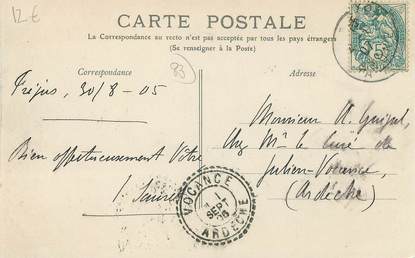 12 €
CARTE POSTALE
La Correspondance au recto n'est pas acceptée par tous les pays étrangers
(Se renseigner à la Poste)
Correspondance
83
Adresse
Fréjus, 30/8-05
Bien affectueusement Vôtre
Monsieur A.
chez Mr le Curé de
Julien-Vocance,
(Ardèche)
VOCANCE
1
SEPT
ARDECHE